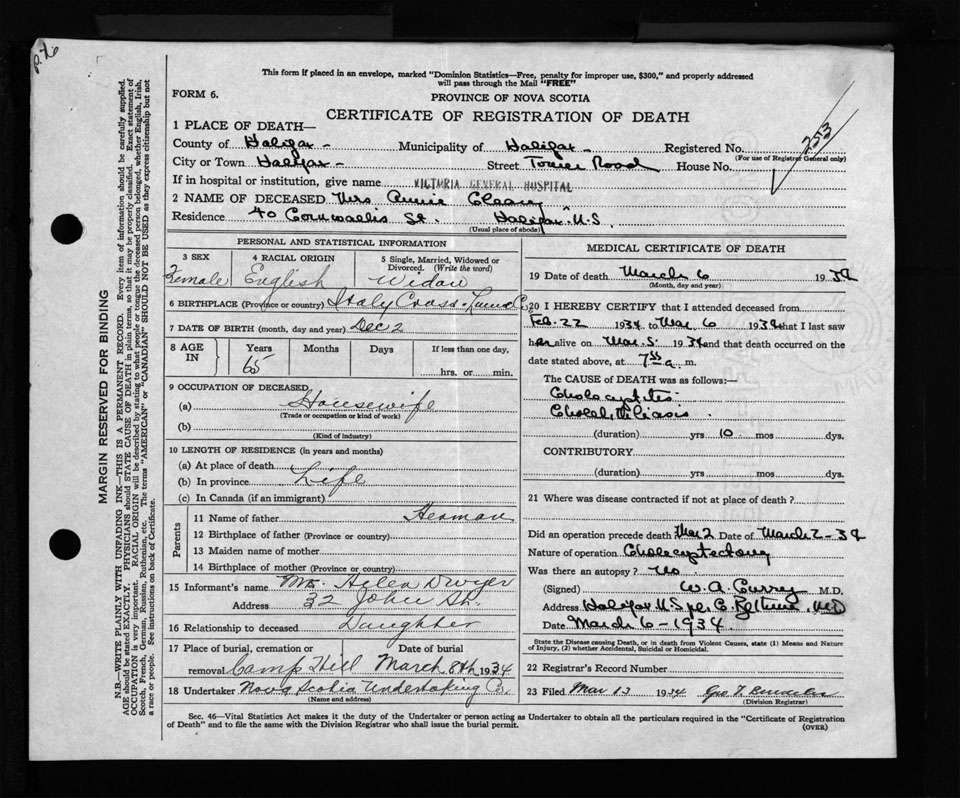 p.76
This form if placed in an envelope, marked "Dominion Statistics—Free, penalty for improper use, $300," and properly addressed
will pass through the Mail "FREE"
FORM 6.
PROVINCE OF NOVA SCOTIA
CERTIFICATE OF REGISTRATION OF DEATH
253
1 PLACE OF DEATH—
County of Halifax - Municipality of Halifax - Registered No.
(For use of Registrar General only)
City or Town Halifax - Street Tower Road House No.
If in hospital or institution, give name VICTORIA GENERAL HOSPITAL
2 NAME OF DECEASED Mrs Annie Cleary
Residence 40 Cornwallis St. Halifax N.S.
(Usual place of abode)
PERSONAL AND STATISTICAL INFORMATION
3 SEX 4 RACIAL ORIGIN 5 Single, Married, Widowed or
Divorced. (Write the word)
Female English Widow
6 BIRTHPLACE (Province or country) Italy Cross - Lunn Co
7 DATE OF BIRTH (month, day and year) Dec 2
8 AGE IN Years Months Days If less than one day,
65 hrs. or min.
9 OCCUPATION OF DECEASED
(a) Housewife
(Trade or occupation or kind of work)
(b)
(Kind of industry)
10 LENGTH OF RESIDENCE (in years and months)
(a) At place of death
(b) In province Life
(c) In Canada (if an immigrant)
Parents
11 Name of father Herman
12 Birthplace of father (Province or country)
13 Maiden name of mother
14 Birthplace of mother (Province or country)
15 Informant's name Mrs. Hilea Dwyer
Address 32 John St.
16 Relationship to deceased Daughter
17 Place of burial, cremation or Date of burial
removal Camp Hill March 8th 1934
18 Undertaker Nova Scotia Undertaking Co.
(Name and address)
MEDICAL CERTIFICATE OF DEATH
19 Date of death March 6 1934
(Month, day and year)
20 I HEREBY CERTIFY that I attended deceased from
Feb. 22 1934 to Mar 6 1934 that I last saw
her alive on Mar 5 1934 and that death occurred on the
date stated above, at 7 55 a. m.
The CAUSE OF DEATH was as follows:—
Cholecystitis
Cholelithiasis
(duration) yrs 10 mos dys.
CONTRIBUTORY
(duration) yrs mos dys.
21 Where was disease contracted if not at place of death?
Did an operation precede death Mar 2 Date of March 2 - 34
Nature of operation Cholecystectomy
Was there an autopsy? No
(Signed) W. A. Curry M.D.
Address Halifax N.S per G. MD
Date March 6 - 1934.
State the Disease causing Death, or in death from Violent Causes, state (1) Means and Nature
of Injury, (2) whether Accidental, Suicidal or Homicidal.
22 Registrar's Record Number
23 Filed Mar 13 1934 Geo
(Division Registrar)
Sec. 46—Vital Statistics Act makes it the duty of the Undertaker or person acting as Undertaker to obtain all the particulars required in the "Certificate of Registration
of Death" and to file the same with the Division Registrar who shall issue the burial permit.
(OVER)
MARGIN RESERVED FOR BINDING
N.B.—WRITE PLAINLY WITH UNFADING INK—THIS IS A PERMANENT RECORD. Every item of information should be carefully supplied.
AGE should be stated EXACTLY. PHYSICIANS should STATE CAUSE OF DEATH in plain terms, so that it may be properly classified. Exact statement of
OCCUPATION is very important. RACIAL ORIGIN will be described by stating to what people or tongue the deceased person belonged, whether English, Irish,
Scotch, French, German, Russian, Ruthenian, etc. The terms "AMERICAN" or "CANADIAN" SHOULD NOT BE USED as they express citizenship but not
a race or people. See instructions on back of Certificate.